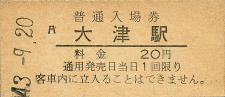 43.-9.20
普通入場券
円 大津駅
料金 20円
通用発売日当日1回限り
客車内に立入ることはできません。